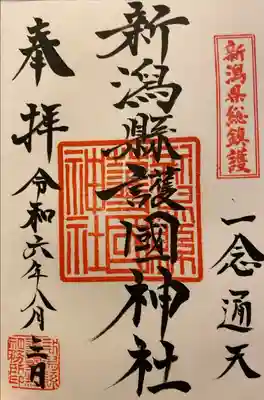 新潟県総鎮護
一念通天
新潟縣護國神社
奉拝
令和六年八月三日